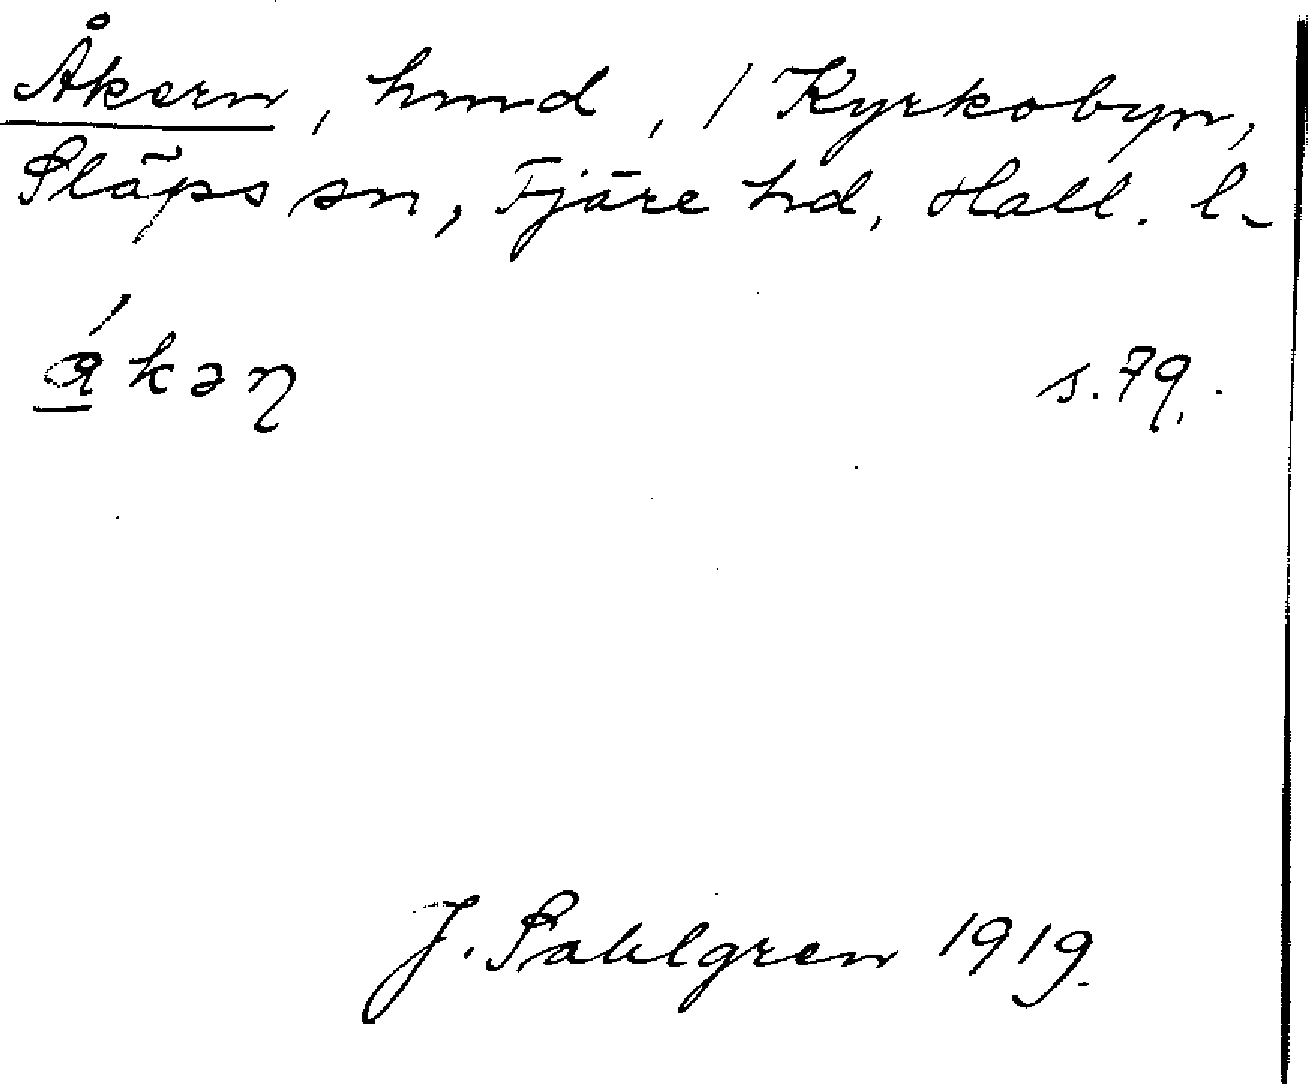 Åkern, hmd, / Kyrkobyn,
Släps sn, Fjäre hd, Hall. l.
ákəη s. 79.
J. Sahlgren 1919.